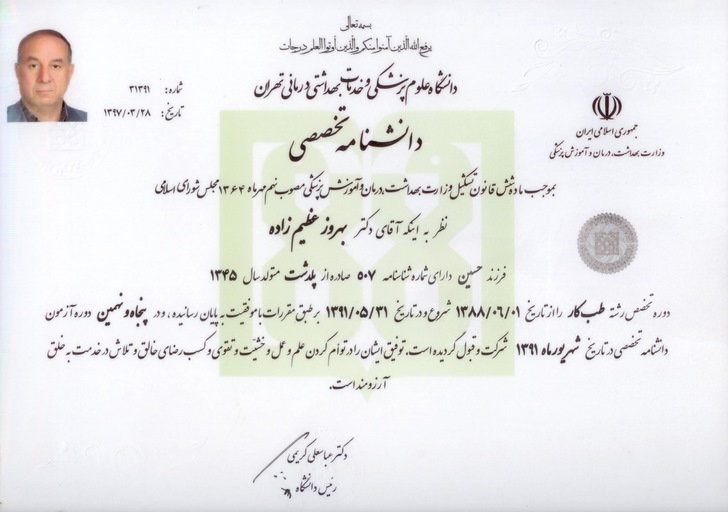 بسمه تعالی
یرفع الله الذین آمنوا منکم والذین اوتوا العلم درجات
دانشگاه علوم پزشکی و خدمات بهداشتی درمانی تهران
شماره: ۳۱۳۹۱
تاریخ: ۱۳۹۷/۰۳/۲۸
جمهوری اسلامی ایران
وزارت بهداشت، درمان و آموزش پزشکی
دانشنامه تخصصی
بموجب ماده شش قانون تشکیل وزارت بهداشت، درمان و آموزش پزشکی مصوب نهم مهرماه ۱۳۶۴ مجلس شورای اسلامی
نظر به اینکه آقای دکتر بهروز عظیم زاده
فرزند حسین دارای شماره شناسنامه ۵۰۷ صادره از پلدشت متولد سال ۱۳۴۵
دوره تخصص رشته طب کار را از تاریخ ۱۳۸۸/۰۶/۰۱ شروع و در تاریخ ۱۳۹۱/۰۵/۳۱ بر طبق مقررات با موفقیت به پایان رسانیده، و در پنجاه و نهمین دوره آزمون
دانشنامه تخصصی در تاریخ شهریور ماه ۱۳۹۱ شرکت و قبول گردیده است، توفیق ایشان را در توأم کردن علم و عمل و خشیت و تقوی و کسب رضای خالق و تلاش در خدمت به خلق
آرزومند است.
دکتر عباسعلی کریمی
رئیس دانشگاه